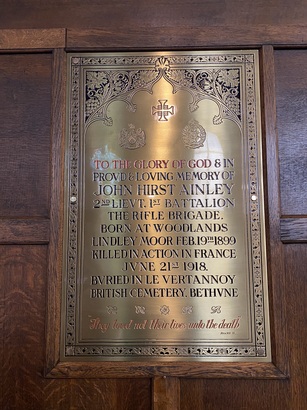 TO THE GLORY OF GOD & IN
PROVD & LOVING MEMORY OF
JOHN HIRST AINLEY
2ND LIEVT. 1ST BATTALION
THE RIFLE BRIGADE.
BORN AT WOODLANDS
LINDLEY MOOR FEB. 19TH 1899
KILLED IN ACTION IN FRANCE
JVNE 21ST 1918.
BVRIED IN LE VERTANNOY
BRITISH CEMETERY. BETHVNE
They loved not their lives unto the death